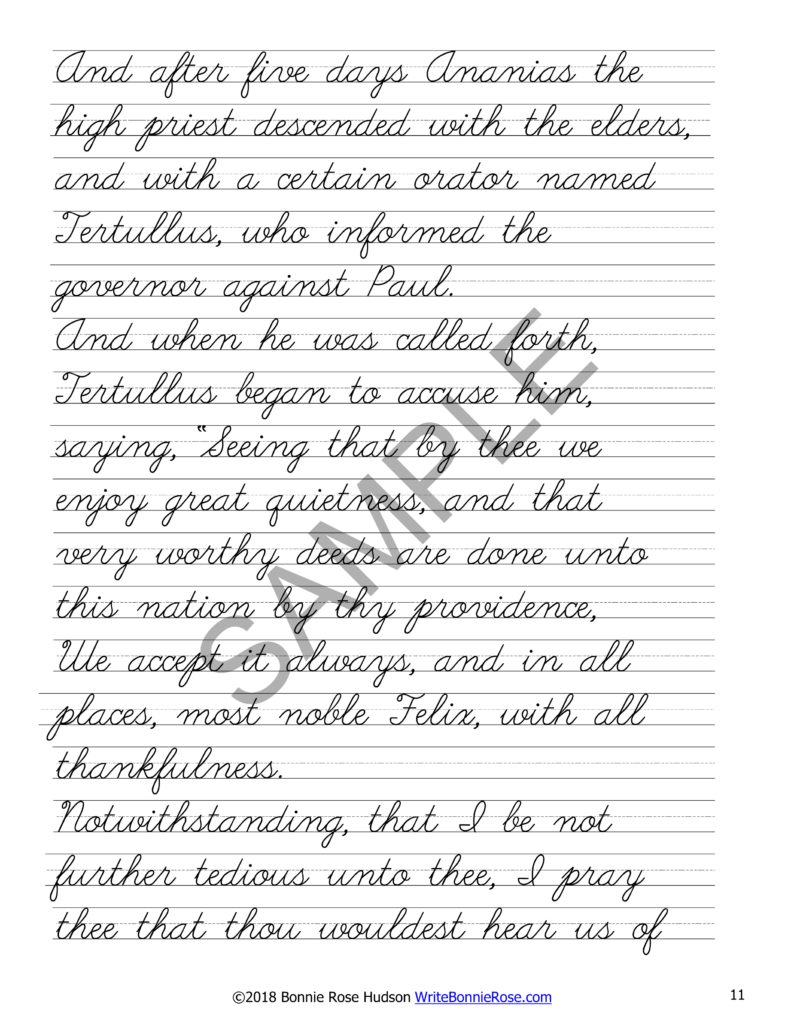 And after five days Ananias the
high priest descended with the elders,
and with a certain orator named
Tertullus, who informed the
governor against Paul.
And when he was called forth,
Tertullus began to accuse him,
saying, “Seeing that by thee we
enjoy great quietness, and that
very worthy deeds are done unto
this nation by thy providence,
We accept it always, and in all
places, most noble Felix, with all
thankfulness.
Notwithstanding, that I be not
further tedious unto thee, I pray
thee that thou wouldest hear us of
SAMPLE
©2018 Bonnie Rose Hudson WriteBonnieRose.com
11